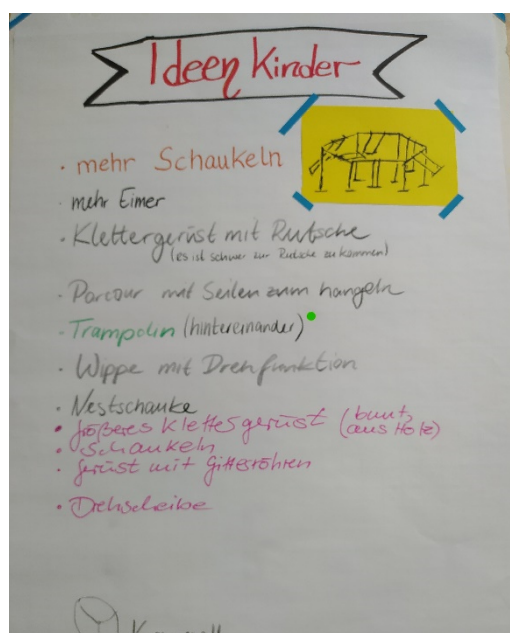 Ideen Kinder
· mehr Schaukeln
· mehr Eimer
· Klettergerüst mit Rutsche
(es ist schwer zur Rutsche zu kommen)
· Parcour mit Seilen zum hangeln
· Trampolin (hintereinander)
· Wippe mit Drehfunktion
· Nestschauke
· größeres Klettergerüst (bunt, aus Holz)
· Schaukeln
· gerüst mit Gitterröhren
· Drehscheibe